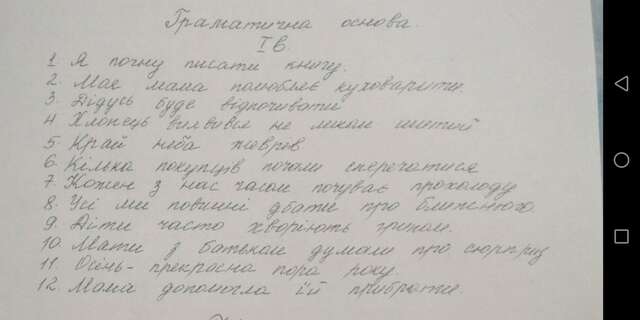 Граматична основа.
I в.
1. Я почну писати книгу.
2. Моя мама полюбляє куховарити.
3. Дідусь буде відпочивати
4 Хлопець виявився не ликом шитий
5. Край неба жеврів
6. Кілька покупців почали сперечатися
7. Кожен з нас часом почуває прохолоду
8. Усі ми повинні дбати про ближнього.
9. Діти часто хворіють грипом.
10. Мати з батьком думали про сюрприз
11. Осінь - прекрасна пора року.
12. Мама допомогла їй прибрати.